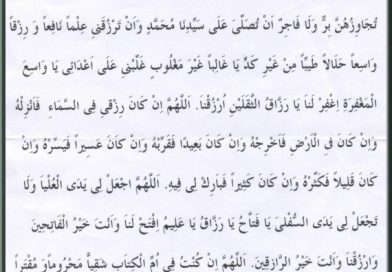 تُجَاوِزُهُنَّ بِرٌّ وَلَا فَاجِرٌ اَنْ تُصَلِّىَ عَلَى سَيِّدِنَا مُحَمَّدٍ وَاَنْ تَرْزُقَنِى عِلْماً نَافِعاً وَ رِزْقاً
وَاسِعاً حَلَالاً طَيِّباً مِنْ غَيْرِ كَدٍّ يَا غَالِباً غَيْرَ مَغْلُوبٍ غَلِّبْنِى عَلَى اَعْدَائِى يَا وَاسِعَ
الْمَغْفِرَةِ اِغْفِرْ لَنَا يَا رَزَّاقُ الثَّقَلَيْنِ اُرْزُقْنَا. اَللّٰهُمَّ اِنْ كَانَ رِزْقِى فِى السَّمَاءِ فَاَنْزِلْهُ
وَاِنْ كَانَ فِى الْاَرْضِ فَاَخْرِجْهُ وَاِنْ كَانَ بَعِيداً فَقَرِّبْهُ وَاِنْ كَانَ عَسِيراً فَيَسِّرْهُ وَاِنْ
كَانَ قَلِيلاً فَكَثِّرْهُ وَاِنْ كَانَ كَثِيراً فَبَارِكْ لِى فِيهِ. اَللّٰهُمَّ اجْعَلْ لِى يَدَى الْعُلْيَا وَلَا
تَجْعَلْ لِى يَدَى السُّفْلَى يَا فَتَّاحُ يَا رَزَّاقُ يَا عَلِيمُ اِفْتَحْ لَنَا وَاَنْتَ خَيْرُ الْفَاتِحِينَ
وَارْزُقْنَا وَاَنْتَ خَيْرُ الرَّازِقِينَ. اَللّٰهُمَّ اِنْ كُنْتُ فِى اُمِّ الْكِتَابِ شَقِيًّا مَحْرُوماً وَ مُقْتَراً